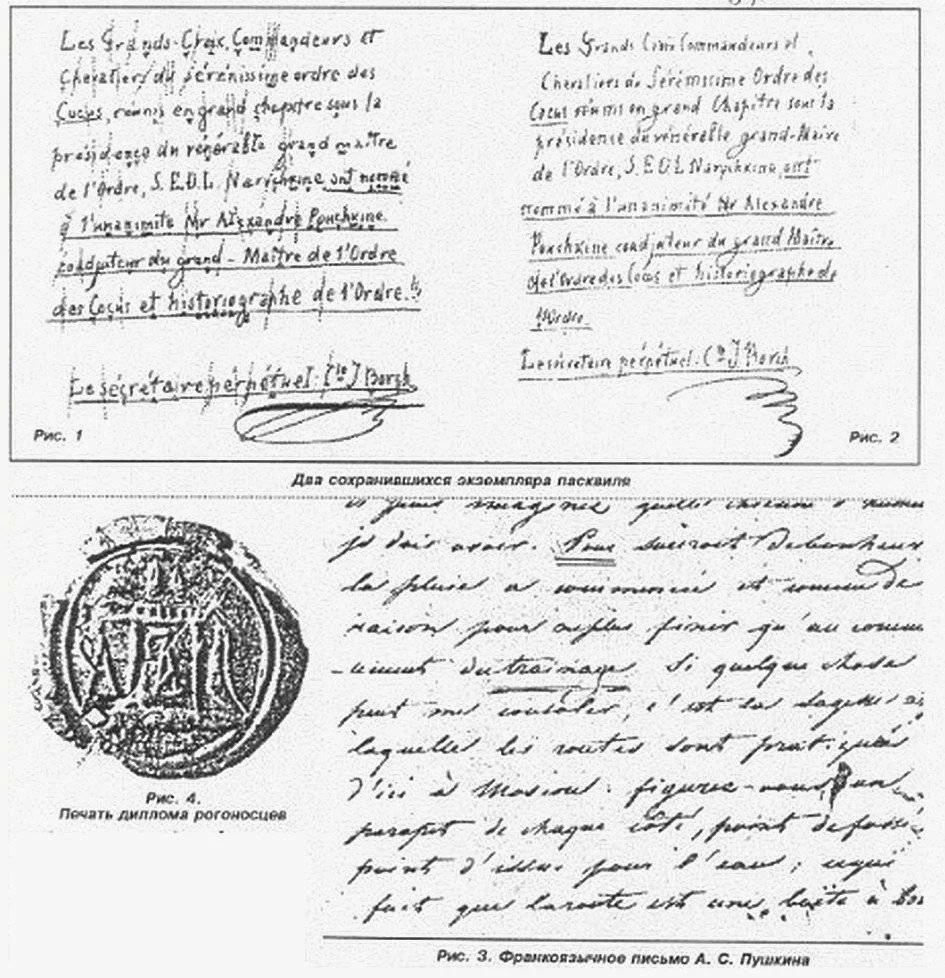 Les Grands-Croix, Commandeurs et
Chevaliers du sérénissime ordre des
Cocus, réunis en grand chapitre sous la
présidence du vénérable grand maître
de l'Ordre, S.E.D.L. Narychkine ont nommé
à l'unanimité Mr Alexandre Pouchkine
coadjuteur du grand-Maître de l'Ordre
des Cocus et historiographe de l'Ordre.
Le sécrétaire perpétuel: Cte J Borch
Рис. 1
Les Grands Croix Commandeurs et
Chevaliers du Sérénissime Ordre des
Cocus réunis en grand Chapitre sous la
présidence du vénérable grand-Maître
de l'Ordre, S.E.D.L Narychkine, ont
nommé à l'unanimité Mr Alexandre
Pouchkine coadjuteur du grand Maître
de l'Ordre des Cocus et historiographe de
l'Ordre.
Le sécretaire perpétuel: Cte J Borch
Рис. 2
Два сохранившихся экземпляра пасквиля
Рис. 4.
Печать диплома рогоносцев
je dois avoir. Pour surcroit de bonheur
la pluie a commencé et comme de
raison pour ne plus finir qu'au comme
-ncement du trainage. Si quelque chose
peut me consoler, c'est la sagesse
laquelle les routes sont pratiquées
d'ici à Moscou: figurez-vous, un
parapet de chaque côté, point de fossé
point d'issue pour l'eau; ce qui
fait que la route est une boëte à
Рис. 3. Франкоязычное письмо А. С. Пушкина